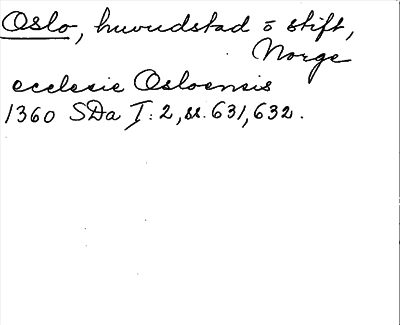 Oslo, huvudstad o stift,
Norge
ecclesie Osloensis
1360 SDa I:2, ss. 631, 632.